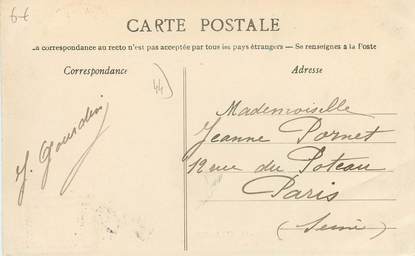 6€
CARTE POSTALE
La correspondance au recto n'est pas acceptée par tous les pays étrangers — Se renseigner à la Poste
Correspondance
Adresse
44
J. Gourdin
Mademoiselle
Jeanne Pornet
12 rue du Poteau
Paris
(Seine)